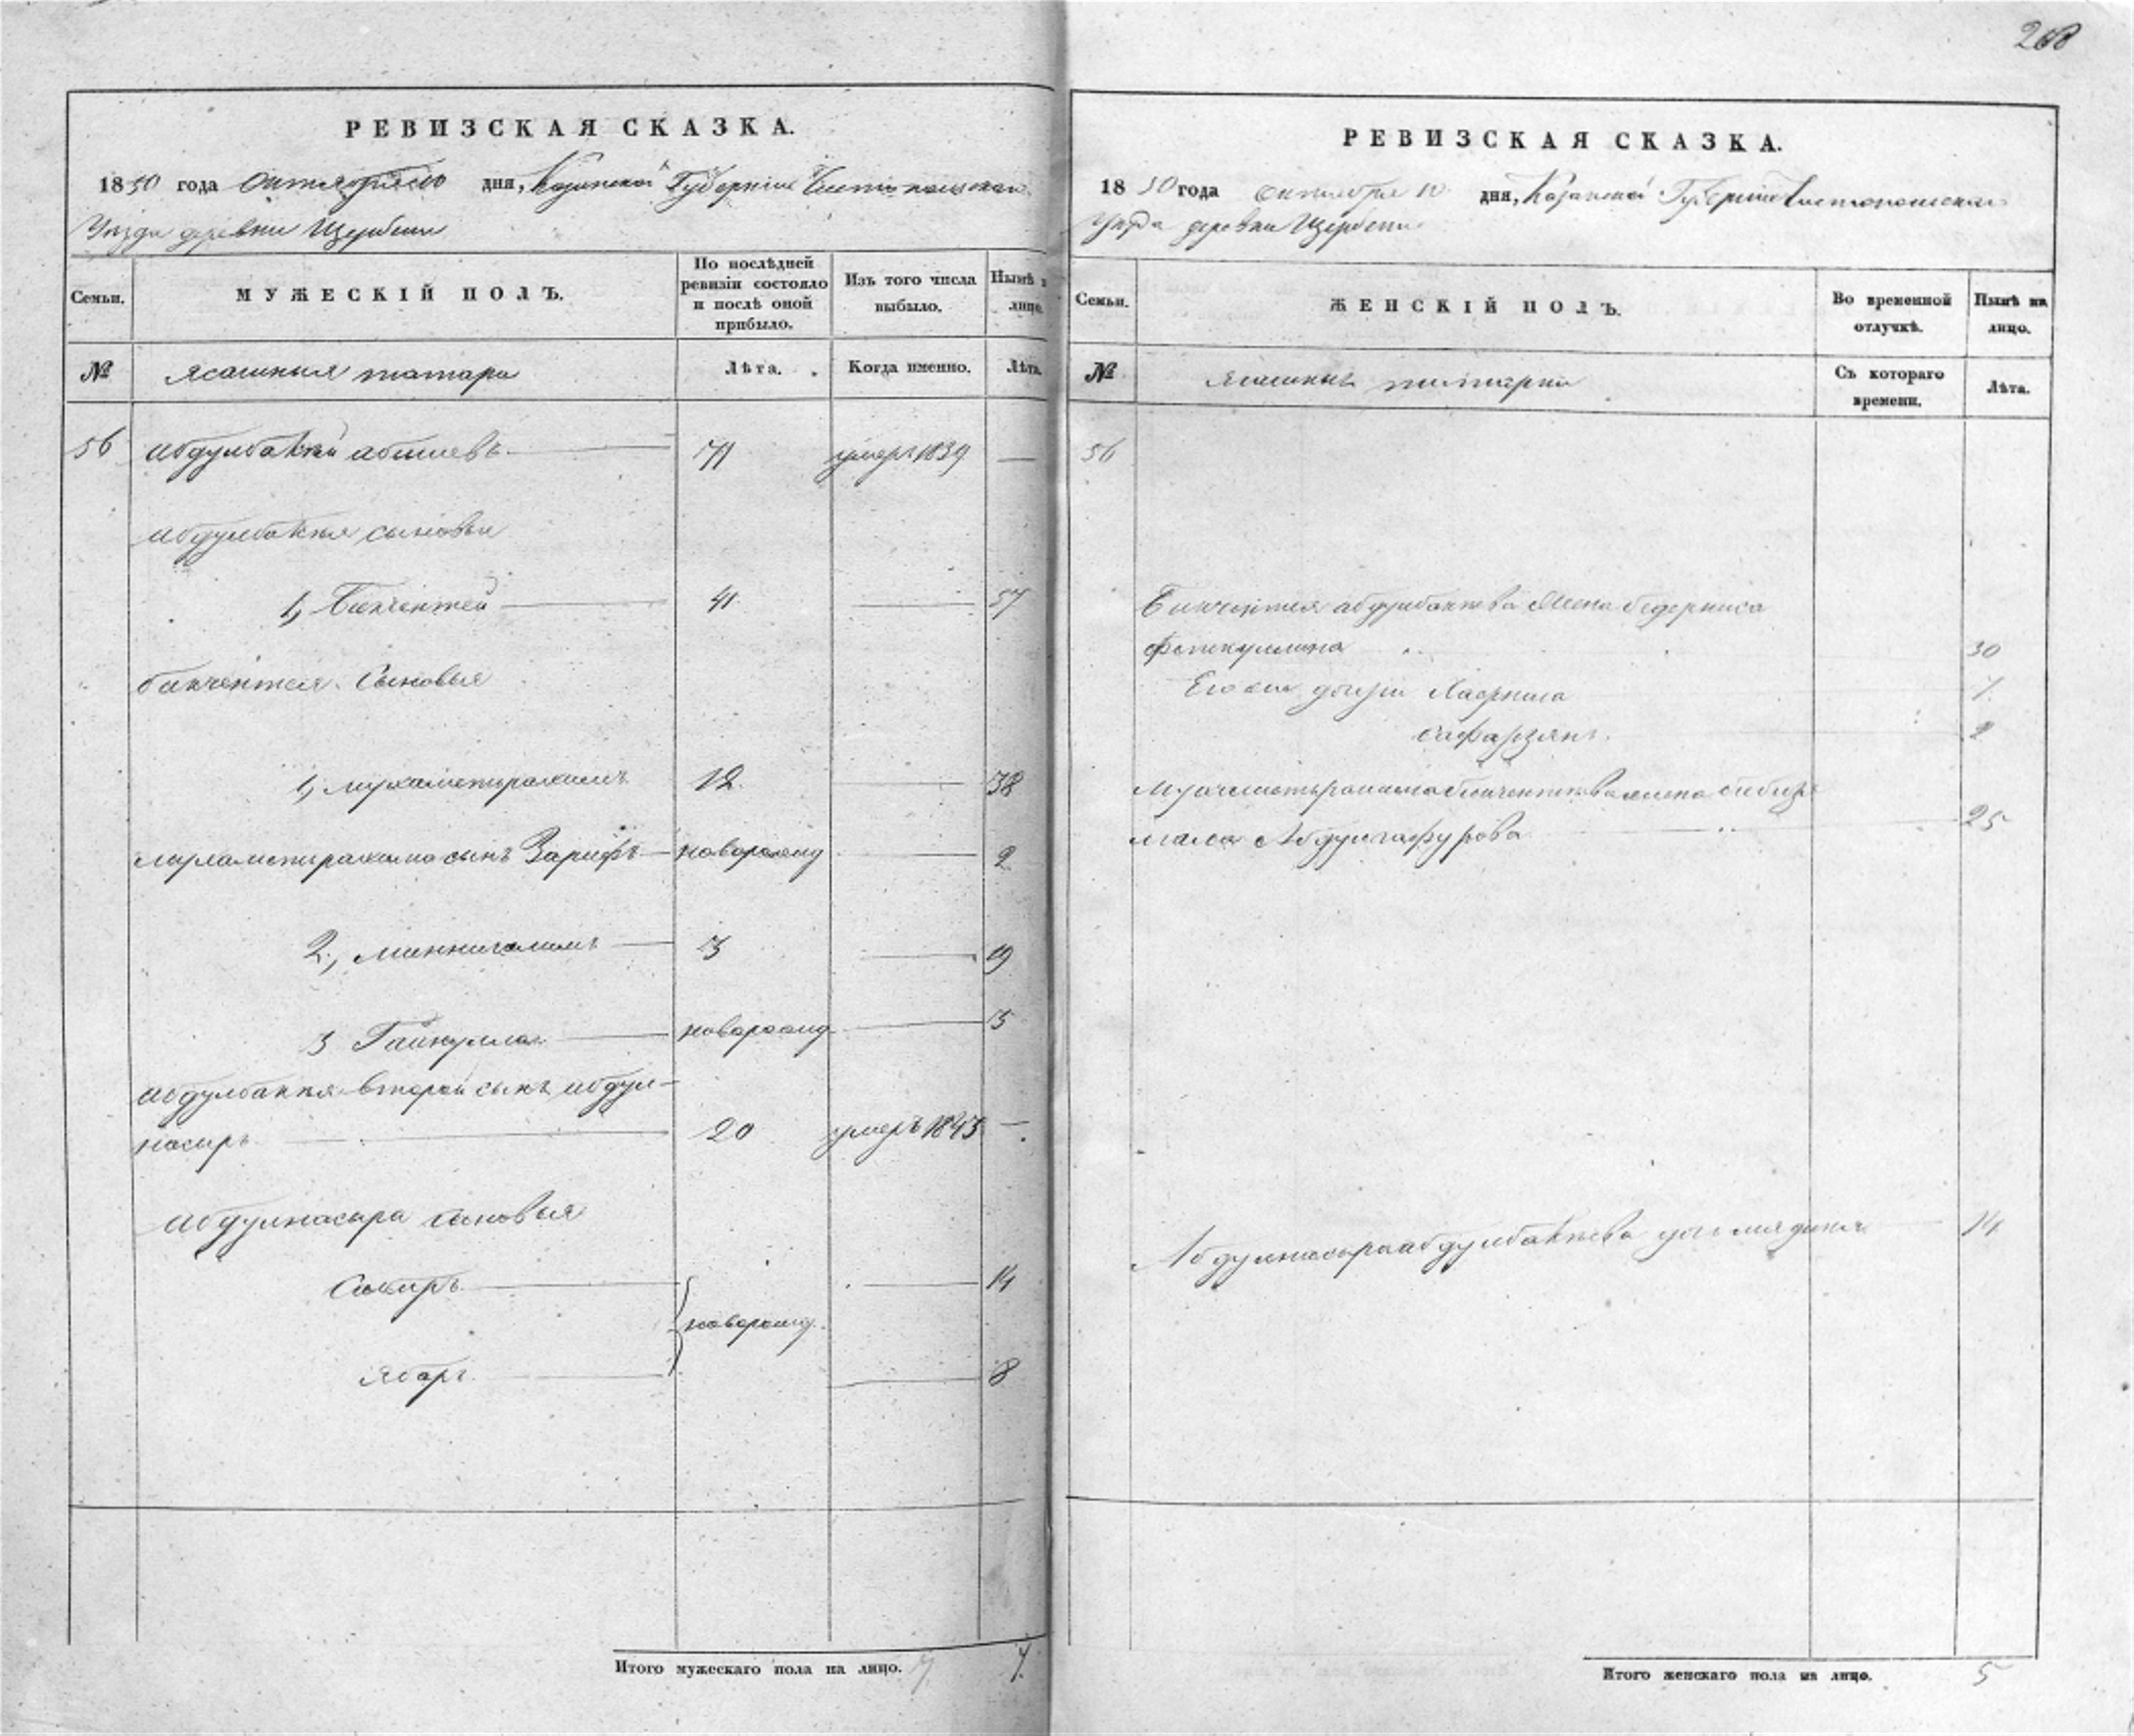 268
РЕВИЗСКАЯ СКАЗКА.
1850 года Октября дня, Казанской Губернiи Чистопольскаго
Уѣзда деревни Щербени
Семьи.
МУЖЕСКIЙ ПОЛЪ.
По послѣдней ревизiи состояло и послѣ оной прибыло.
Изъ того числа выбыло.
Нынѣ на лицо.
№
Ясашныя татара
Лѣта.
Когда именно.
Лѣта.
56 Абдулбакій абтиевъ 71 умеръ 1839 —
абдулбакія сыновья
1, Бикчентей 41 57
бикчентея Сыновья
1, мухаметьрахимъ 12 38
мухаметьрахима сынъ Зарифъ новорожд 2
2, Миннигалимъ 3 19
3 Гайнулла новорожд 15
абдулбакия второй сынъ абдул-
насыръ 20 умеръ 1843 —
абдулнасыра сыновья
Сабиръ 14
новорожд.
Ябаръ 8
Итого мужескаго пола на лицо. 7
РЕВИЗСКАЯ СКАЗКА.
1850 года Октября дня, Казанской Губернiи Чистопольскаго
Уѣзда деревни Щербени
Семьи.
ЖЕНСКIЙ ПОЛЪ.
Во временной отлучкѣ.
Нынѣ на лицо.
№
Ясашныя татарки
Съ котораго времени.
Лѣта.
56
Бикчентея абдулбакиева Жена бедерниса
фяткуллина 30
Его дочери 7
сафарзянъ 2
Мухаметьрахима бикчентева жена биби
Абдулгафурова 25
Абдулнасыра абдулбакиева дочь 14
Итого женскаго пола на лицо. 5